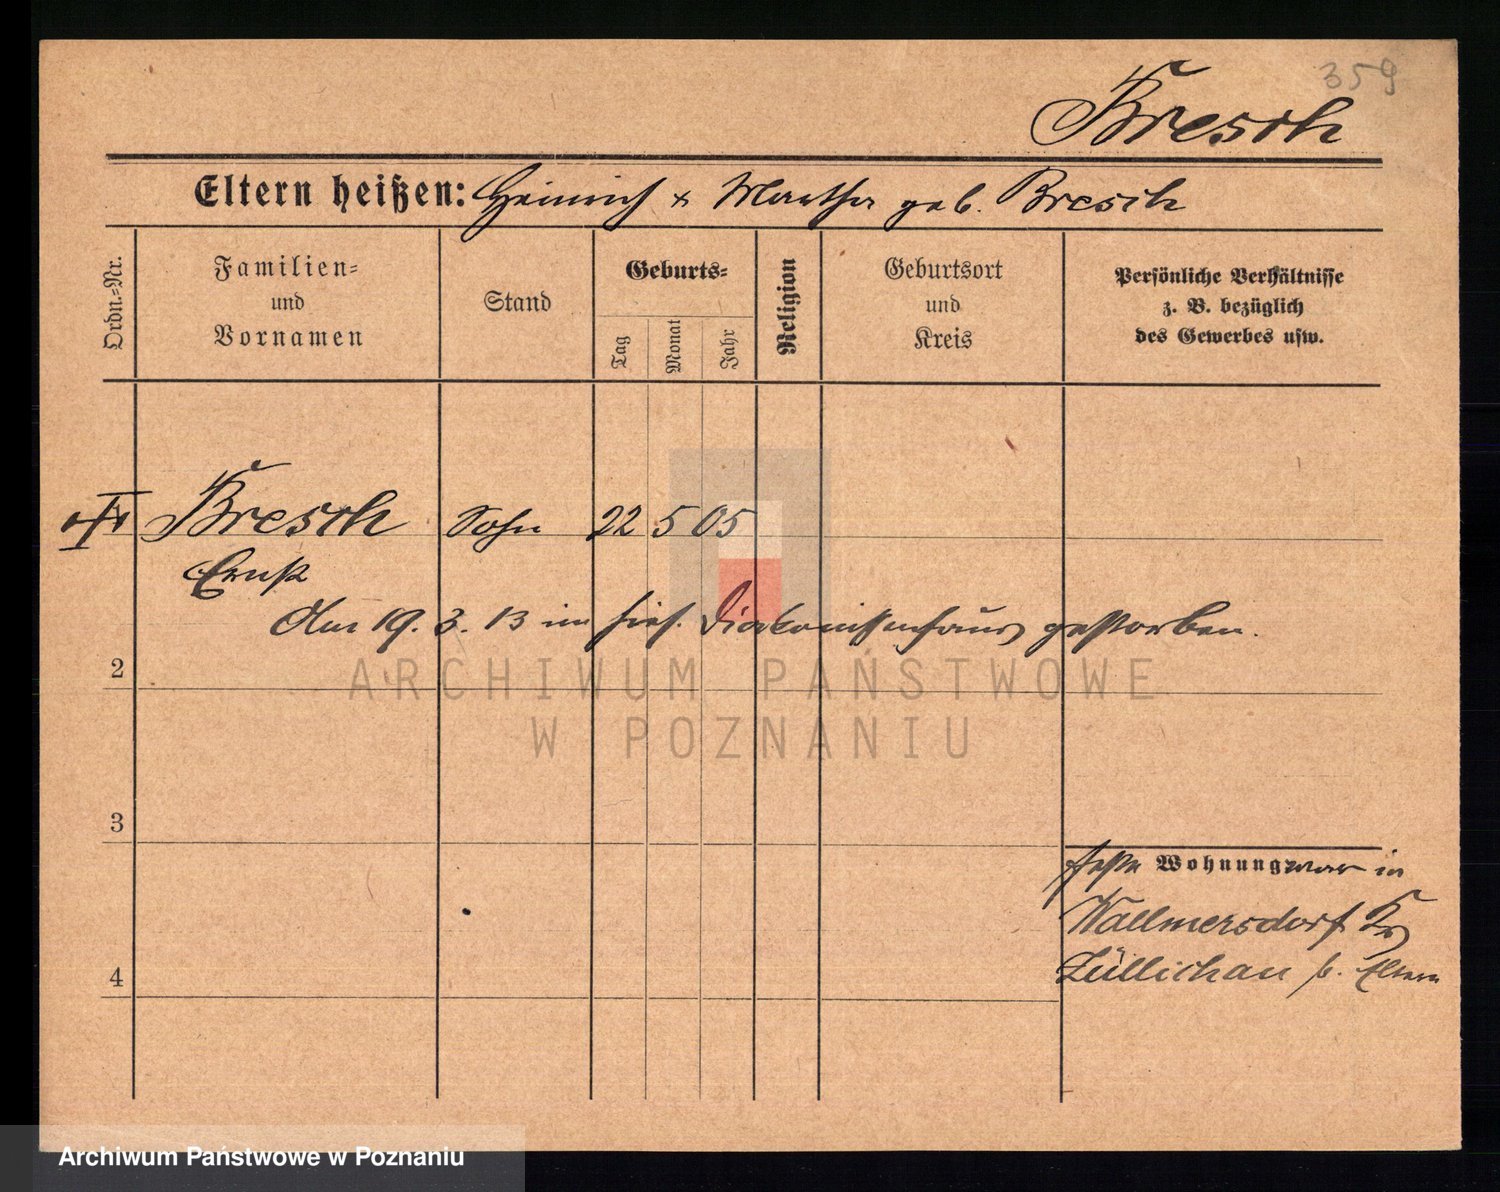 359
Bresch
Eltern heißen: Heinrich & Martha geb. Bresch
Ordn.-Nr.
Familien-
und
Vornamen
Stand
Geburts-
Tag
Monat
Jahr
Religion
Geburtsort
und
Kreis
Persönliche Verhältnisse
z. B. bezüglich
des Gewerbes usw.
Bresch Sohn 22 5 05
Ernst
Am 19. 3. 13 im hies. Diakonissenhaus gestorben.
2
ARCHIWUM PAŃSTWOWE
W POZNANIU
3
feste Wohnung war in
Wallmersdorf Kr
Züllichau b. Eltern
4
Archiwum Państwowe w Poznaniu